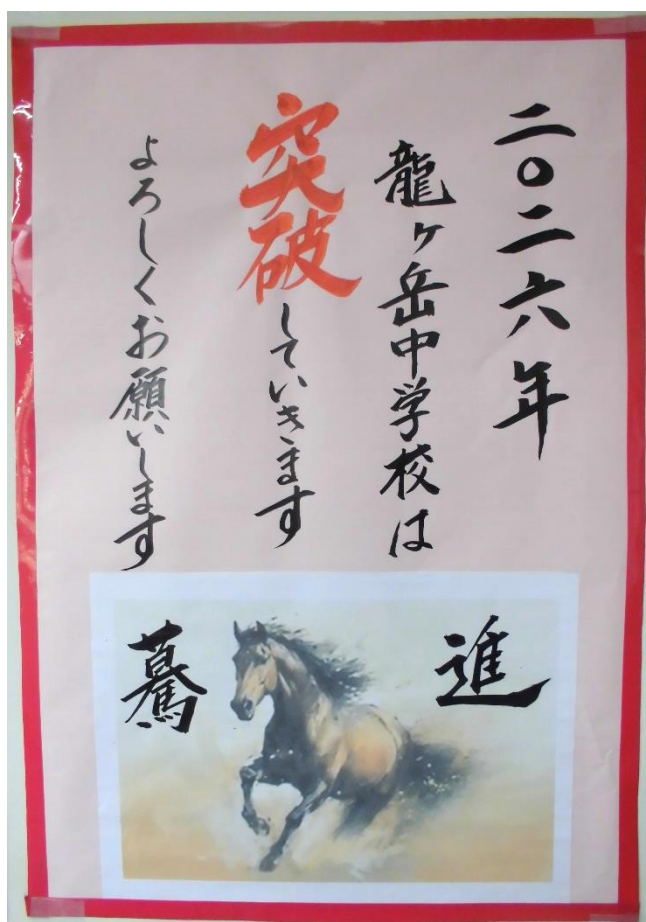 二〇二六年
龍ヶ岳中学校は
突破していきます
よろしくお願いします
進
驀